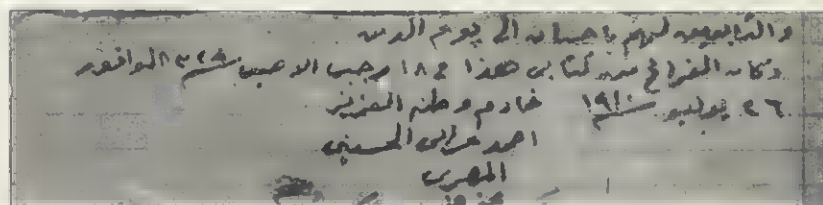 والتابعين لهم باحسان الى يوم الدين
وكان الفراغ من كتابى هذا فى ١٨ رجب الاصب سنة ١٣٢٨ الموافق
٢٦ يوليو سنة ١٩١٠ خادم وطنه العزيز
احمد عرابى الحسينى
المصرى